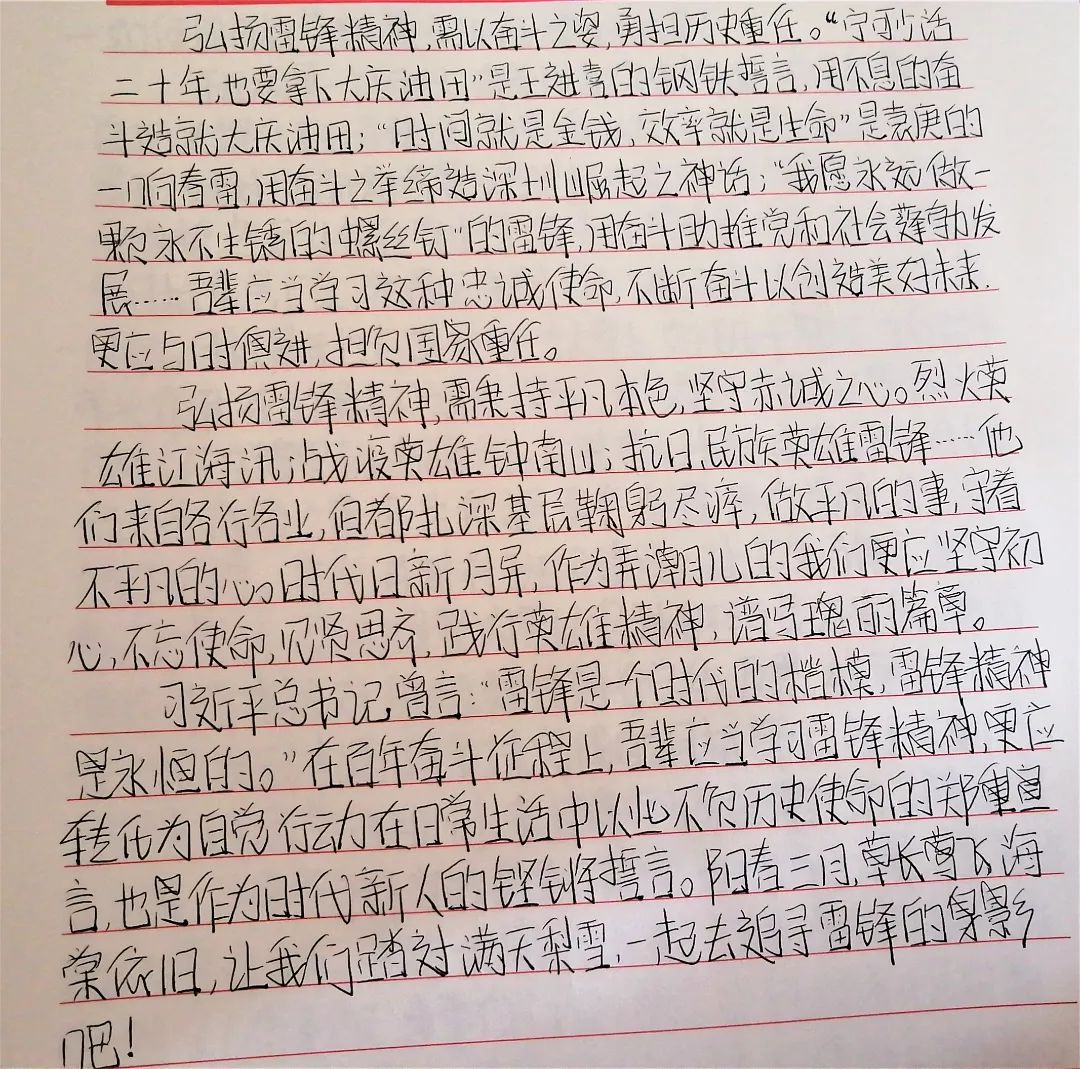 弘扬雷锋精神,需以奋斗之姿,勇担历史重任。“宁可少活
二十年,也要拿下大庆油田”是王进喜的钢铁誓言,用不息的奋
斗造就大庆油田;“时间就是金钱,效率就是生命”是袁庚的
一响春雷,用奋斗之举缔造深圳崛起之神话;“我愿永远做一
颗永不生锈的螺丝钉”的雷锋,用奋斗助推党和社会蓬勃发
展……吾辈应当学习这种忠诚使命,不断奋斗以创造美好未来,
更应与时俱进,担负国家重任。
弘扬雷锋精神,需秉持平凡本色,坚守赤诚之心。烈火英
雄江海汛;战疫英雄钟南山;抗日民族英雄雷锋……他
们来自各行各业,但都扎深基层鞠躬尽瘁,做平凡的事,守着
不平凡的心。时代日新月异,作为弄潮儿的我们更应坚守初
心,不忘使命,见贤思齐,践行英雄精神,谱写瑰丽篇章。
习近平总书记曾言:“雷锋是一个时代的楷模,雷锋精神
是永恒的。”在百年奋斗征程上,吾辈应当学习雷锋精神,更应
转化为自觉行动在日常生活中以此不负历史使命的郑重宣
言,也是作为时代新人的铿锵誓言。阳春三月,草长莺飞,海
棠依旧,让我们踏过满天梨雪,一起去追寻雷锋的身影
吧!